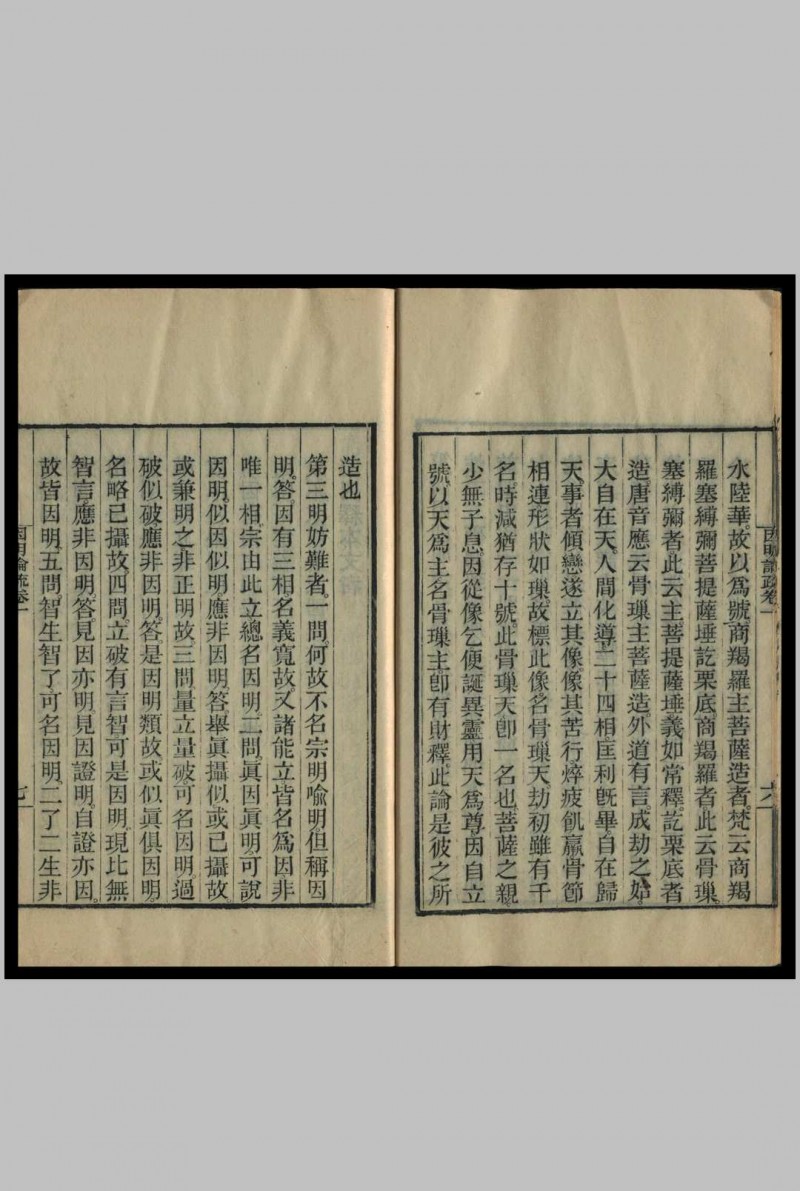 因明論疏卷一
六
水陸華。故以爲號。商羯羅主菩薩造者。梵云商羯
羅塞縛彌菩提薩埵訖栗底。商羯羅者。此云骨璅。
塞縛彌者。此云主。菩提薩埵。義如常釋。訖栗底者
造。唐音應云骨璅主菩薩造。外道有言。成劫之始。
大自在天。人間化導。二十四相。匡利旣畢。自在歸
天。事者傾戀。遂立其像。像其苦行。悴疲飢羸。骨節
相連。形狀如璅。故標此像名骨璅天。劫初雖有千
名。時減猶存十號。此骨璅天。卽一名也。菩薩之親。
少無子息。因從像乞。便誕異靈。用天爲尊。因自立
號。以天爲主。名骨璅主。卽有財釋。此論是彼之所
造也
第三明妨難者。一問。何故不名宗明喻明。但稱因
明。答。因有三相。名義寬故。又諸能立。皆名爲因。非
唯一相。宗由此立。總名因明。二問。眞因眞明。可說
因明。似因似明。應非因明。答。舉眞攝似。或已攝故
或兼明之。非正明故。三問。量立量破。可名因明。過
破似破。應非因明。答。是因明類故。或似眞俱因明。
名略已攝故。四問。立破有言智。可是因明。現比無
智言。應非因明。答。見因亦明。見因證明。自證亦因。
故皆因明。五問。智生智了。可名因明。二了二生。非
因明論疏卷一
七